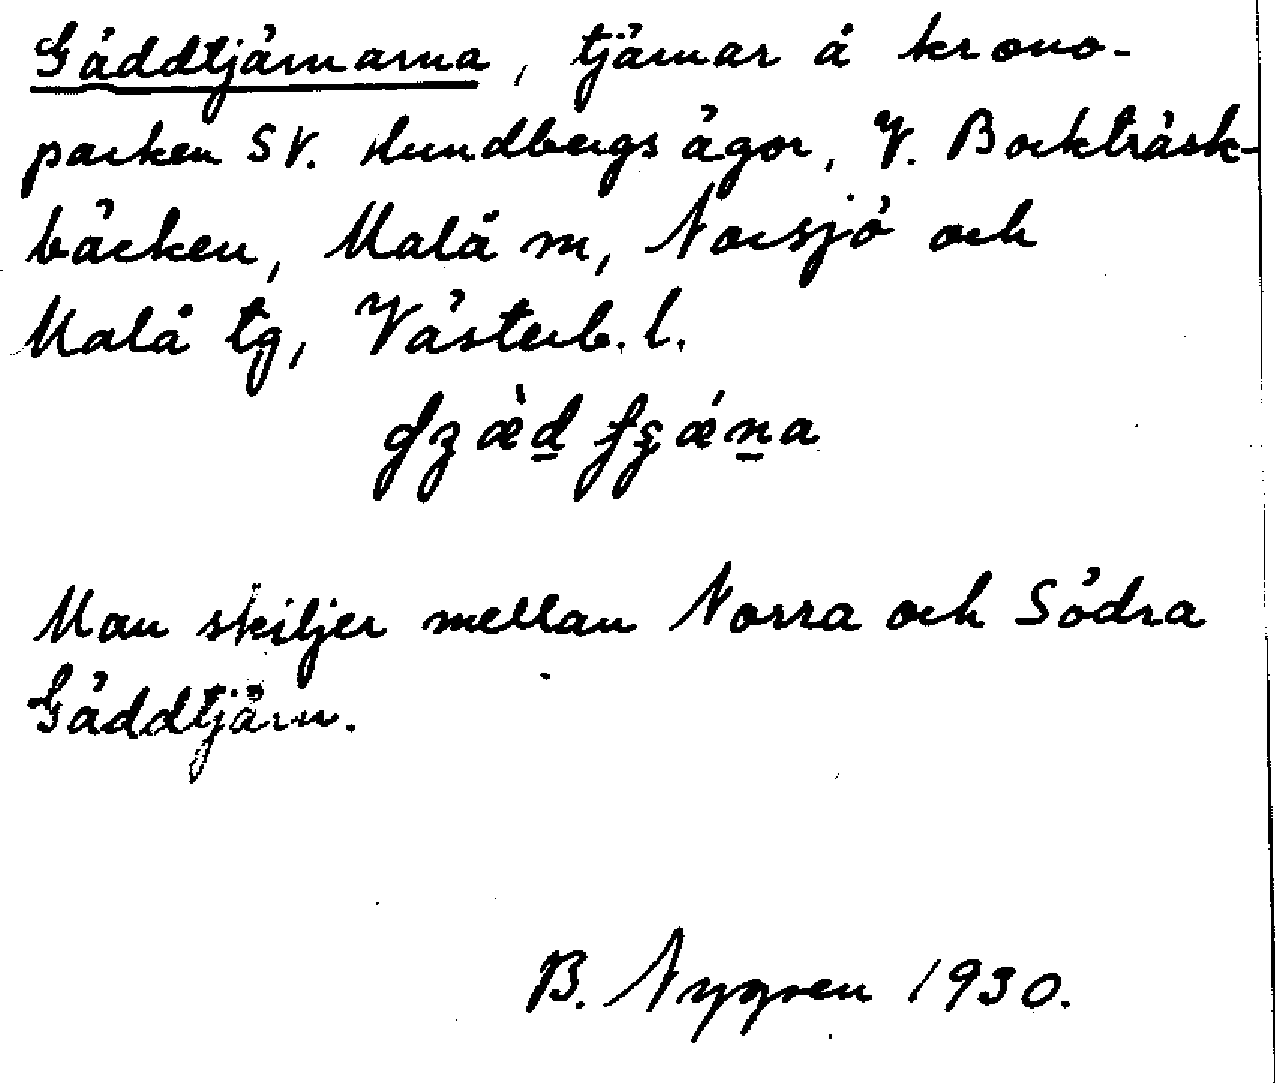 Gäddtjärnarna, tjärnar å krono-
parken SV. Hundbergs ägor, V. Bockträsk-
bäcken, Malå sn, Norsjö och
Malå tg, Västerb. l.
Man skiljer mellan Norra och Södra
Gäddtjärn.
B. Nygren 1930.